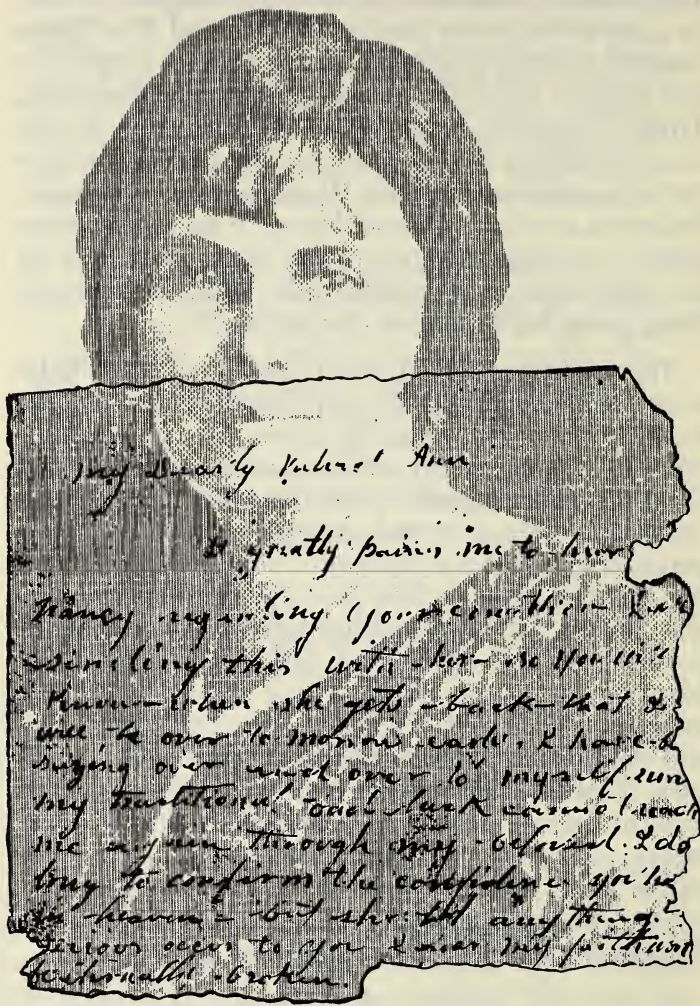 My Dearly Valued Ann
It greatly pains me to hear
Nancy regarding your condition I am
sending this with her so you will
know when she gets back that I
will be over to morrow early. I have
saying over and over to myself
my traditional bad luck cannot reach
me again through my beloved. I do
long to confirm the confidence you've
in heaven - but should anything
serious occur to you I fear my
broken.